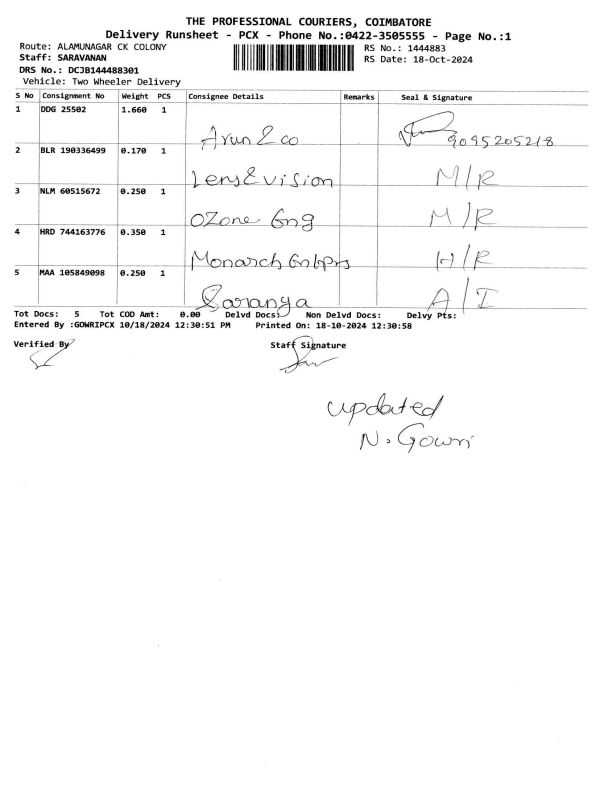 THE PROFESSIONAL COURIERS, COIMBATORE
Delivery Runsheet - PCX - Phone No.:0422-3505555 - Page No.:1
Route: ALAMUNAGAR CK COLONY RS No.: 1444883
Staff: SARAVANAN RS Date: 18-Oct-2024
DRS No.: DCJB144488301
Vehicle: Two Wheeler Delivery
S No Consignment No Weight PCS Consignee Details Remarks Seal & Signature
1 DDG 25502 1.660 1 Arun & co 9095205218
2 BLR 190336499 0.170 1 Lens & vision M/R
3 NLM 60515672 0.250 1 OZone Eng M/R
4 HRD 744163776 0.350 1 Monarch H/R
5 MAA 105849098 0.250 1 Saranya A/I
Tot Docs: 5 Tot COD Amt: 0.00 Delvd Docs: Non Delvd Docs: Delvy Pts:
Entered By :GOWRIPCX 10/18/2024 12:30:51 PM Printed On: 18-10-2024 12:30:58
Verified By Staff Signature
updated
N. Gowri